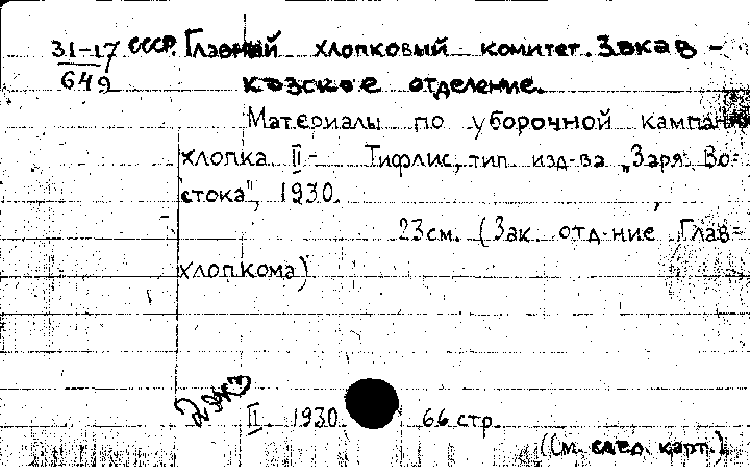 31-17 СССР. Главный хлопковый комитет. Закав-
649 казское отделение.
Материалы по уборочной кампании
хлопка II- Тифлис, тип. изд-ва „Заря Во=
стока", 1930.
23см. (Зак. отд-ние Глав=
хлопкома)
II. 1930. 66 стр.
(См. след. карт.)